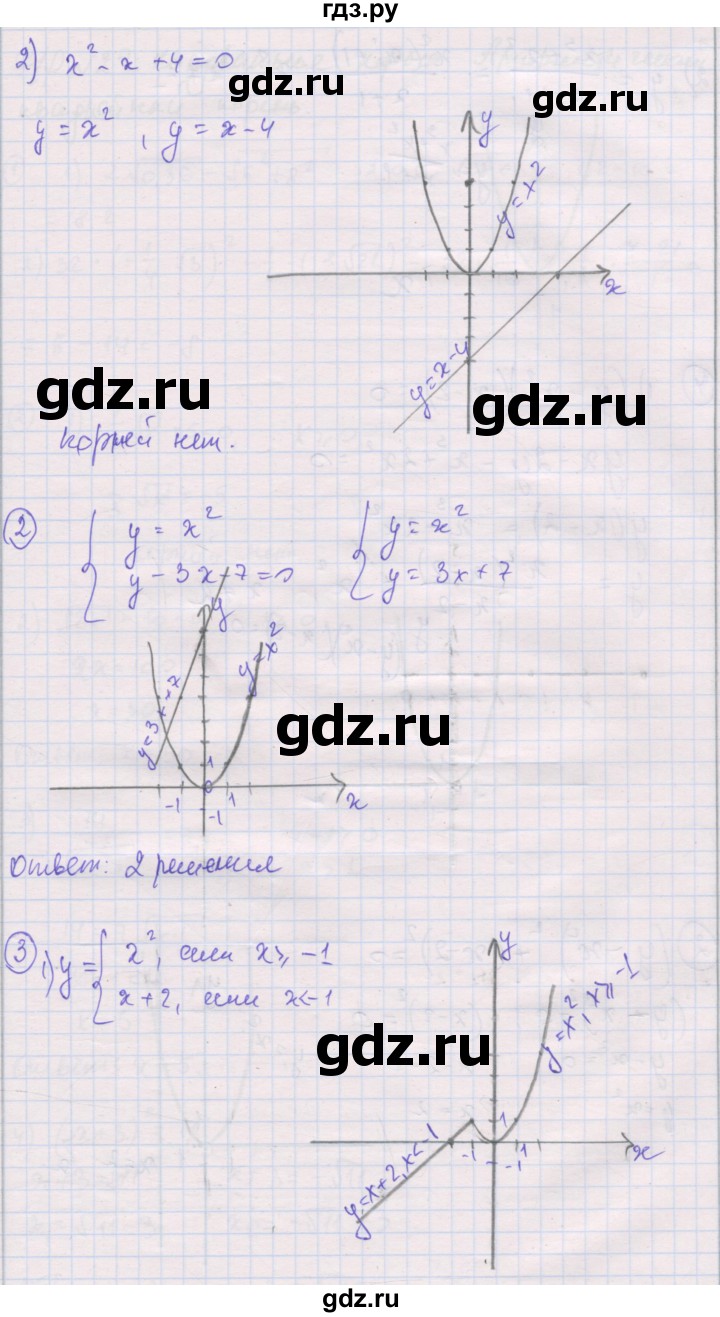 гдз.ру
2) x² - x + 4 = 0
gdz.ru
gdz.ru
y = x² , y = x - 4
y
y = x²
x
y = x-4
gdz.ru
gdz.ru
корней нет.
2
y = x²
y - 3x - 7 = 0
y = x²
y = 3x + 7
y
y = x²
y = 3x+7
gdz.ru
1
0
-1
1
-1
x
ответ: 2 решения
3
1) y = x², если x ≥ -1
x + 2, если x < -1
y
y = x², x ≥ -1
gdz.ru
y = x+2, x < -1
1
-1
1
-1
x
gdz.ru